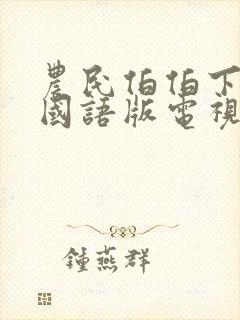 農民伯伯下
國語版電視
鍾燕群